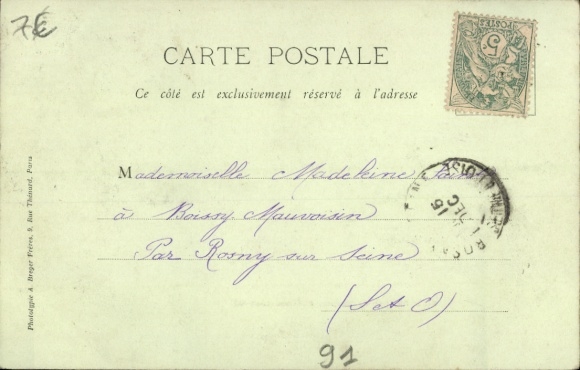 7€
CARTE POSTALE
Ce côté est exclusivement réservé à l'adresse
POSTES
5
Mademoiselle Madeleine
à Boissy Mauvoisin
Par Rosny sur Seine
(S et O)
15
DEC
91
Phototypie A. Breger Frères, 9, Rue Thénard, Paris